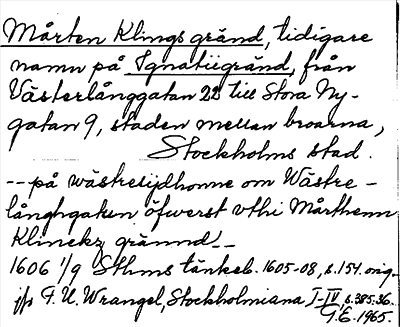 Mårten Klings gränd, tidigare
namn på Ignatiigränd, från
Västerlånggatan 22 till Stora Ny-
gatan 9, staden mellan broarna,
Stockholms stad.
-- på wästresijdhonne om Wästre-
långhgaten öfwerst vthi Mårthenn
Klinckz grännd --
1606 1/9 Sthms tänkeb. 1605-08, s. 154. orig.
jfs F. U. Wrangel, Stockholmiana I-IV, s. 385.36.
G.E. 1965.